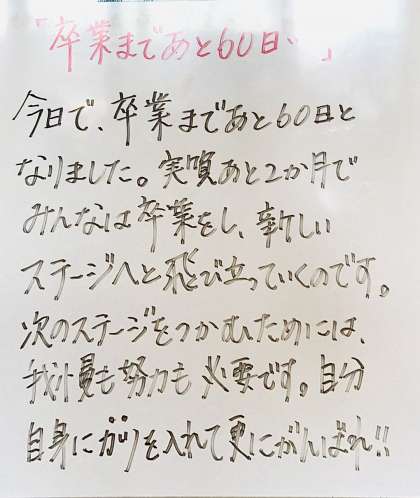 「卒業まであと60日‥」
今日で、卒業まであと60日と
なりました。実質あと2か月で
みんなは卒業をし、新しい
ステージへと飛び立っていくのです。
次のステージをつかむためには、
我慢も努力も必要です。自分
自身にガツを入れて更にがんばれ!!